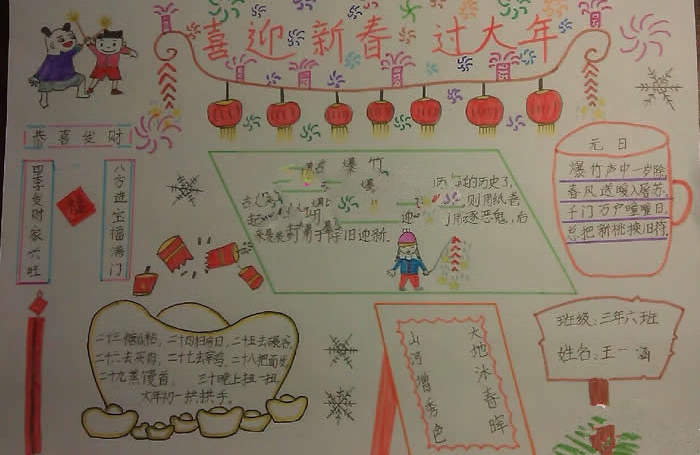 喜迎新春 过大年
恭喜发财
四季发财家兴旺
八方进宝福满门
爆竹
的历史了,
则用纸卷
用于除旧迎新.
逐恶鬼,后
元日
爆竹声中一岁除
春风送暖入屠苏
千门万户曈曈日
总把新桃换旧符
二十三糖瓜粘,二十四扫房日,二十五
二十六去买肉,二十七去宰鸡,二十八把面发
二十九蒸馒首,三十晚上扭一扭
大年初一拱拱手。
大地沐春晖
山河增秀色
班级:三年六班
姓名:王一涵